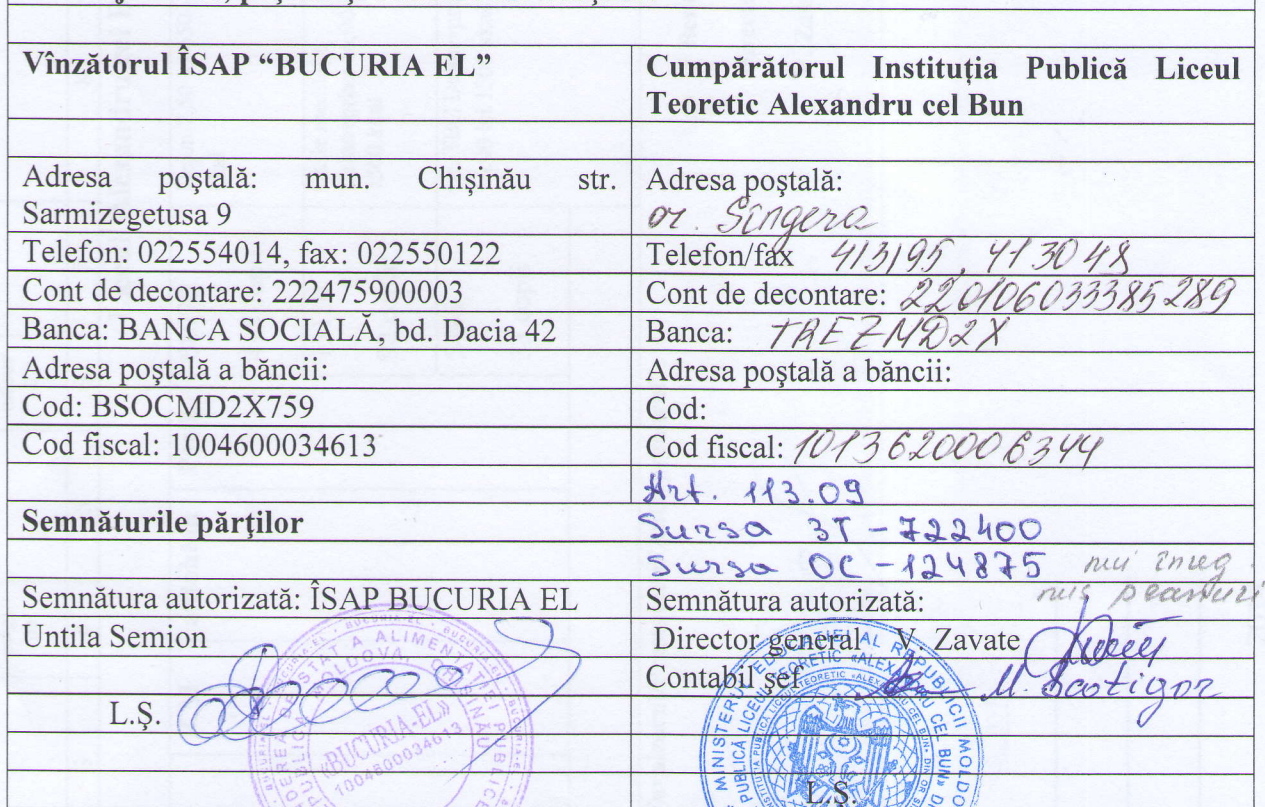 Vînzătorul ÎSAP “BUCURIA EL”
Cumpărătorul Instituția Publică Liceul
Teoretic Alexandru cel Bun
Adresa poştală: mun. Chişinău str.
Sarmizegetusa 9
Adresa poştală:
or. Sîngera
Telefon: 022554014, fax: 022550122
Telefon/fax 413195, 413048
Cont de decontare: 222475900003
Cont de decontare: 220106033385289
Banca: BANCA SOCIALĂ, bd. Dacia 42
Banca: TREZMD2X
Adresa poştală a băncii:
Adresa poştală a băncii:
Cod: BSOCMD2X759
Cod:
Cod fiscal: 1004600034613
Cod fiscal: 1013620006344
Art. 113.09
Semnăturile părților
Sursa 3T - 722400
Sursa OC - 124875
Semnătura autorizată: ÎSAP BUCURIA EL
Semnătura autorizată:
Untila Semion
Director general V. Zavate
Contabil şef
L.Ş.
«BUCURIA-EL»
1004600034613
MINISTERUL EDUCAȚIEI AL REPUBLICII MOLDO
L.Ş.